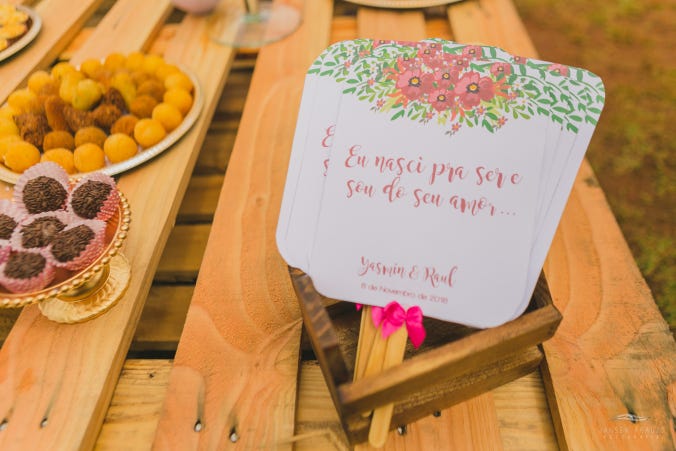 Eu nasci pra ser e
sou do seu amor...
Yasmin & Raul
8 de Novembro de 2018
JANSEN ARAUJO